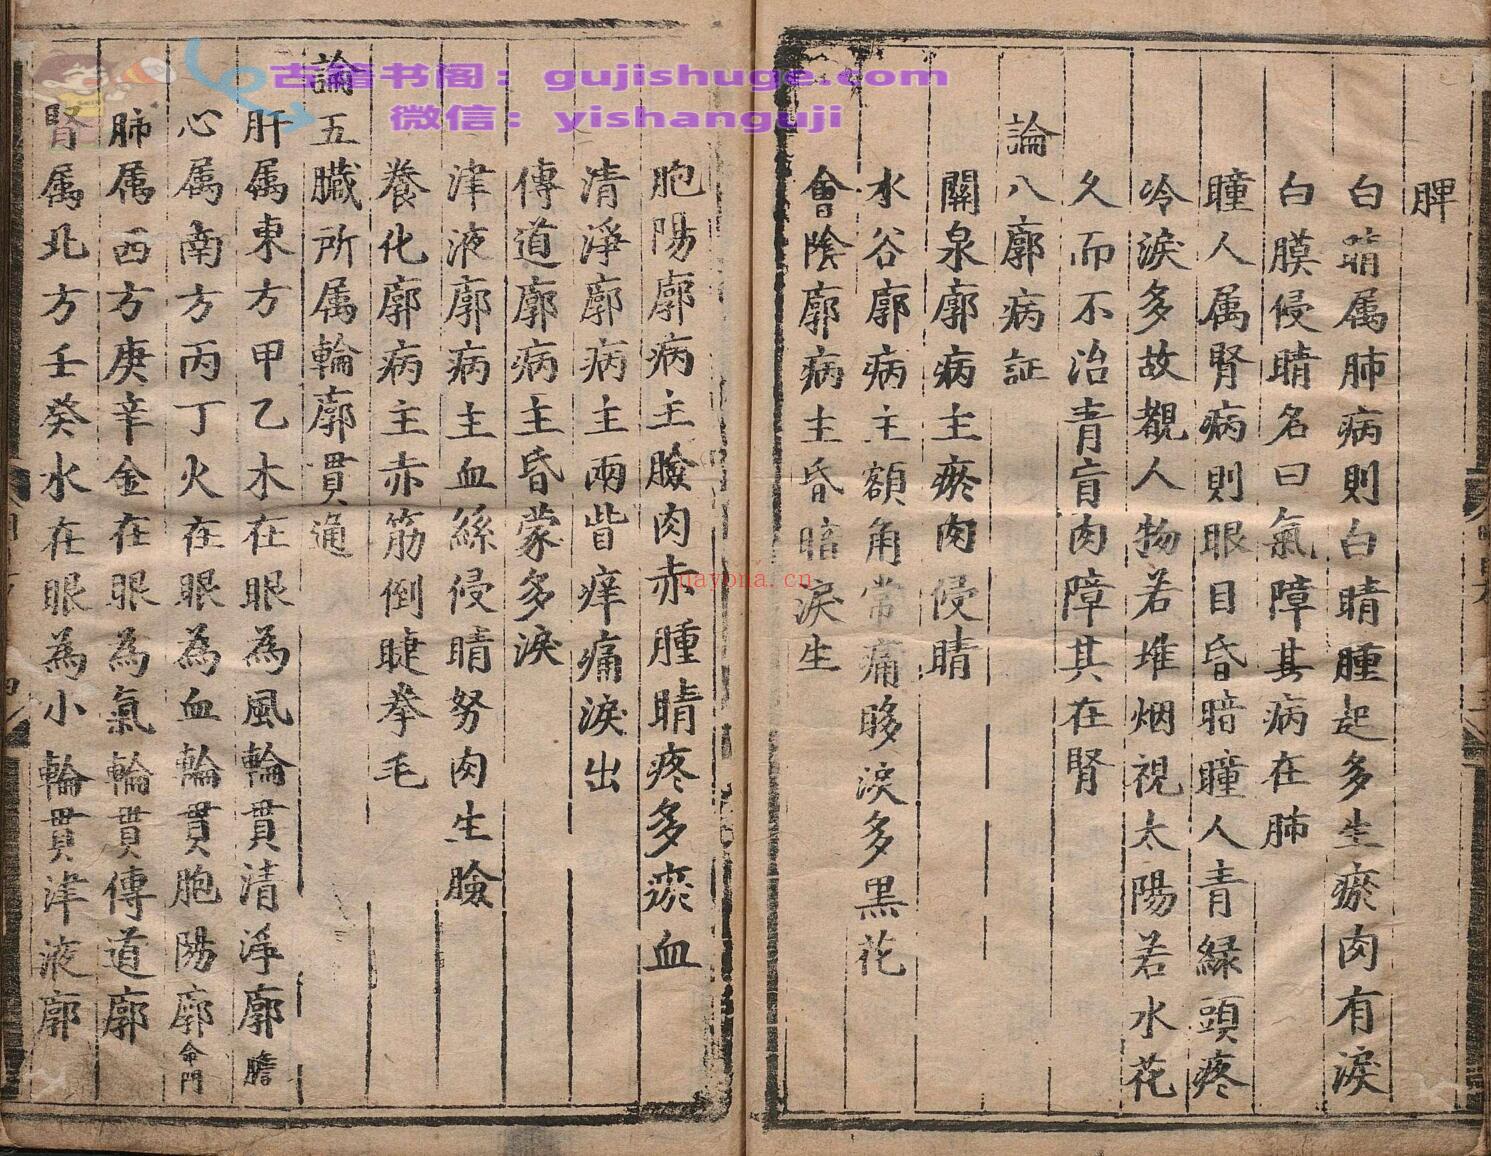 脾
白睛属肺病則白睛腫起多生瘀肉有淚
白膜侵睛名曰氣障其病在肺
瞳人属腎病則眼目昏暗瞳人青緑頭疼
冷淚多故覩人物若堆烟視太陽若水花
久而不治青盲肉障其在腎
論八廓病証
關泉廓病主瘀肉侵睛
水谷廓病主額角常痛眵淚多黑花
會陰廓病主昏暗淚生
胞陽廓病主臉肉赤腫睛疼多瘀血
清淨廓病主兩眥痒痛淚出
傳道廓病主昏蒙多淚
津液廓病主血絲侵睛努肉生臉
養化廓病主赤筋倒睫拳毛
論五臟所属輪廓貫通
肝属東方甲乙木在眼為風輪貫清淨廓膽
心属南方丙丁火在眼為血輪貫胞陽廓命門
肺属西方庚辛金在眼為氣輪貫傳道廓
腎属北方壬癸水在眼為小輪貫津液廓
古籍书阁：gujishuge.com
微信：yishanguji
nayona.cn